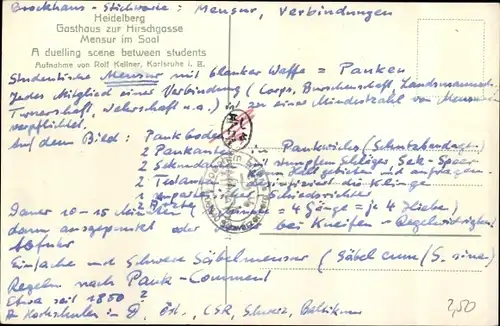 Brockhaus-Stichworte: Mensur, Verbindungen
Heidelberg
Gasthaus zur Hirschgasse
Mensur im Saal
A duelling scene between students
Aufnahme von Rolf Kellner, Karlsruhe i. B.
Studentische Mensur mit blanker Waffe = Pauken
Jedes Mitglied einer Verbindung (Corps, Burschenschaft, Landsmannsch.
Turnerschaft, u.a.) ist zu einer Mindestzahl von Mensuren
verpflichtet.
Auf dem Bild: Paukboden
2 Paukanten Paukwichs (Schutzbandagen)
2 Sekundanten stumpfem Schläger, Sek-Speer
kann Halt gebieten und anfragen
2 Testanten desinfiziert die Klinge
1 Unparteiischer Schiedsrichter
2 Ärzte
Dauer 10-15 Minuten = 4 Gänge = je 4 Hiebe)
dann ausgepaukt oder bei Kneifen - Regelwidrigkeit
Abfuhr
Einfache und Schwere Säbelmensur (Säbel cum/S. sine)
Regeln nach Pauk-Comment
Etwa seit 1850
Hochschulen in D, Öst., CSR, Schweiz, Baltikum
2,50